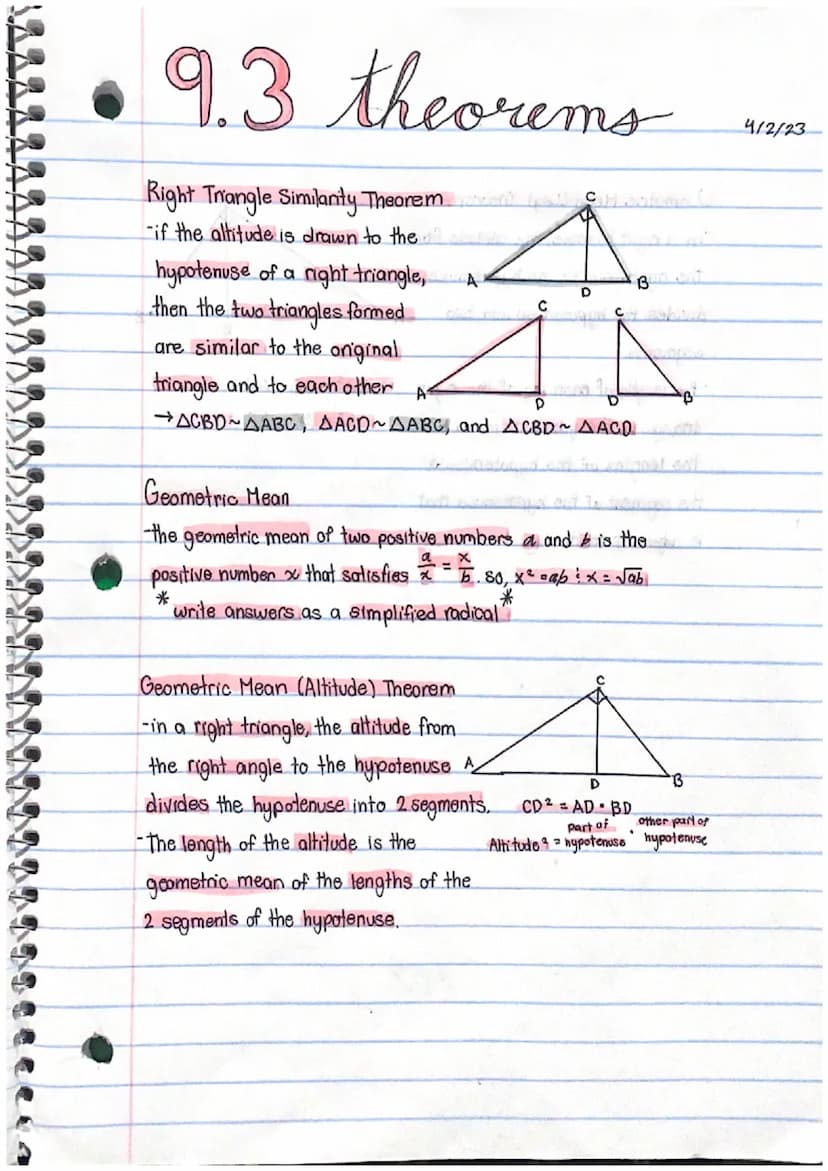 9.3 theorems
4/2/23
Right Triangle Similarity Theorem
-if the altitude is drawn to the
hypotenuse of a right triangle,
then the two triangles formed
are similar to the original
triangle and to each other
→ △CBD ~ △ABC, △ACD ~ △ABC, and △CBD ~ △ACD
C
A
B
D
C
A
D
C
D
B
Geometric Mean
-the geometric mean of two positive numbers a and b is the
positive number x that satisfies a/x = x/b. so, x² = ab ; x = √ab
*write answers as a simplified radical*
Geometric Mean (Altitude) Theorem
-in a right triangle, the altitude from
the right angle to the hypotenuse
divides the hypotenuse into 2 segments.
-The length of the altitude is the
geometric mean of the lengths of the
2 segments of the hypotenuse.
C
A
B
D
CD² = AD • BD
Altitude² = part of hypotenuse • other part of hypotenuse